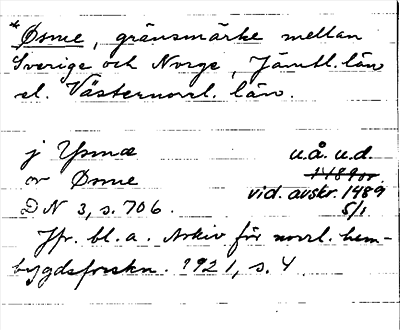 *Øsme, gränsmärke mellan
Sverige och Norge, Jämtl. län
el. Västernorrl. län.
j Ysmæ u.å. u.d.
or Øsme 1489 or.
vid. avskr. 1489
DN 3, s. 706. 5/1
Jfr. bl. a. Arkiv för norrl. hem-
bygdsforskn. 1921, s. 4.